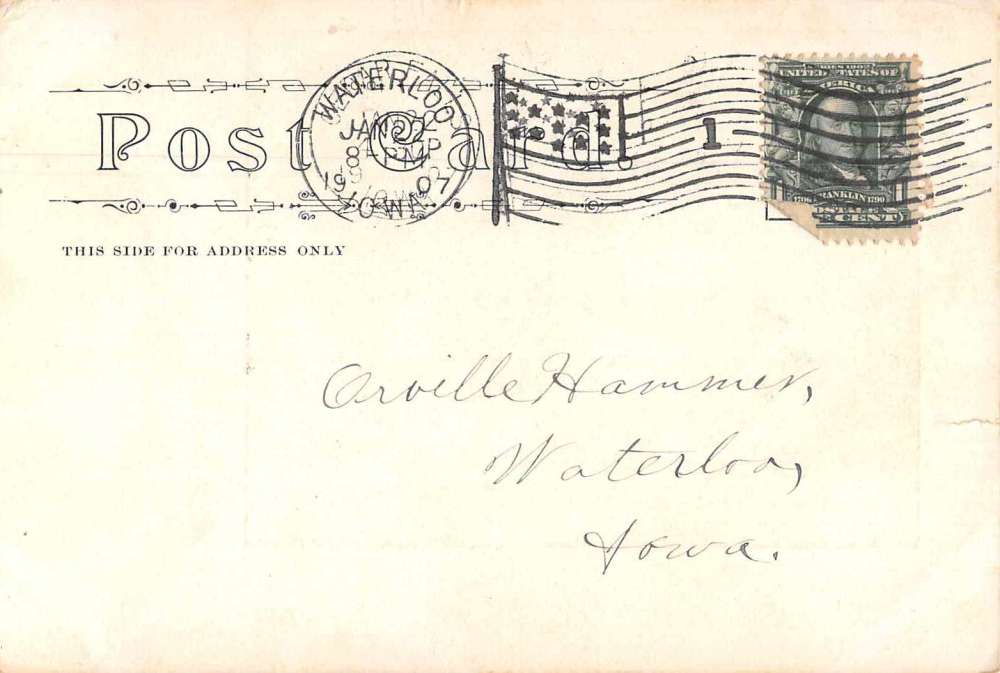 Post Card.
WATERLOO
JAN 22
8 - PM
1907
IOWA
1
UNITED STATES OF
AMERICA
1706 FRANKLIN 1790
CENT
THIS SIDE FOR ADDRESS ONLY
Orville Hammer,
Waterloo,
Iowa.